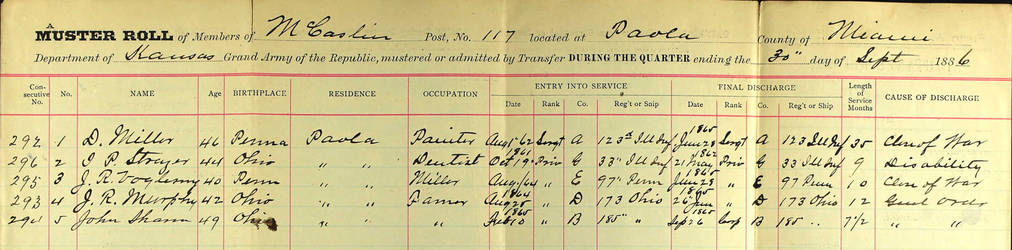 A
MUSTER ROLL of Members of McCaslin Post, No. 117 located at Paola County of Miami
Department of Kansas Grand Army of the Republic, mustered or admitted by Transfer DURING THE QUARTER ending the 30" day of Sept 1886
Consecutive No. No. NAME Age BIRTHPLACE RESIDENCE OCCUPATION ENTRY INTO SERVICE Date Rank Co. Reg't or Ship FINAL DISCHARGE Date Rank Co. Reg't or Ship Length of Service Months CAUSE OF DISCHARGE
292 1 D. Miller 46 Penna Paola Painter Aug 1/62 Sergt A 123d Ill Inf June 28 1865 Sergt A 123 Ill Inf 35 Close of War
296 2 J P. Strayer 44 Ohio " " Dentist Oct 19 1861 Priv G 33" Ill Inf 21 May 1862 Priv G 33 Ill Inf 9 Disability
295 3 J. R. 40 Penn " " Miller Aug 1/64 " E 97" Penn June 28 1865 " E 97 Penn 10 Close of War
293 4 J. R. Murphy 42 Ohio " " Farmer Aug 20 1864 " D 173 Ohio 26 June 1865 " D 173 Ohio 12 Genl Order
294 5 John Shann 49 Ohio " " Feb 10 1865 " B 185" " Sep 26 1865 Corp B 185 " 7 1/2 " "